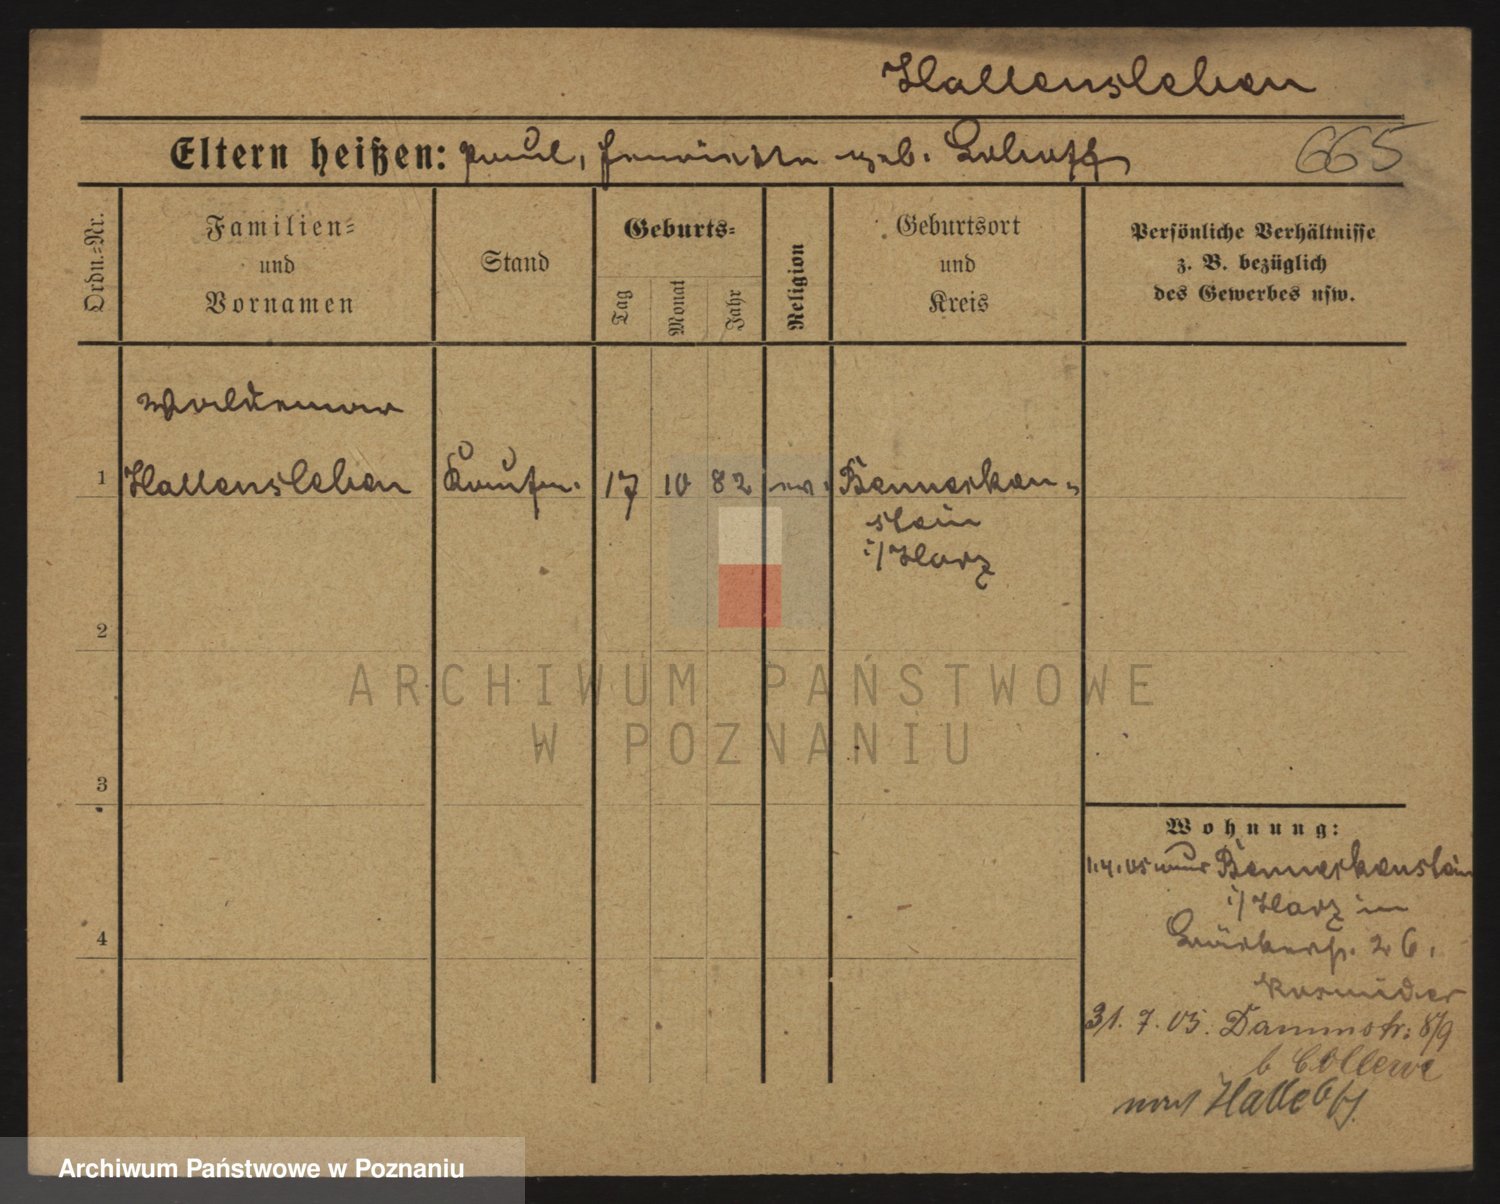 Hallensleben
Eltern heißen: Paul, geb. 665
Ordn.-Nr.
Familien- und Vornamen
Stand
Geburts-
Tag
Monat
Jahr
Religion
Geburtsort und Kreis
Persönliche Verhältnisse z. B. bezüglich des Gewerbes usw.
Woldemar
1 Hallensleben Kaufm. 17 10 82 ev. Benneken-
stein
i/Harz
2
3
4
Wohnung:
1.4.05 Benneckenstein
i/Harz in
26.
31.7.05. Dammstr. 8/9
b
nach Halle
ARCHIWUM PAŃSTWOWE
W POZNANIU
Archiwum Państwowe w Poznaniu